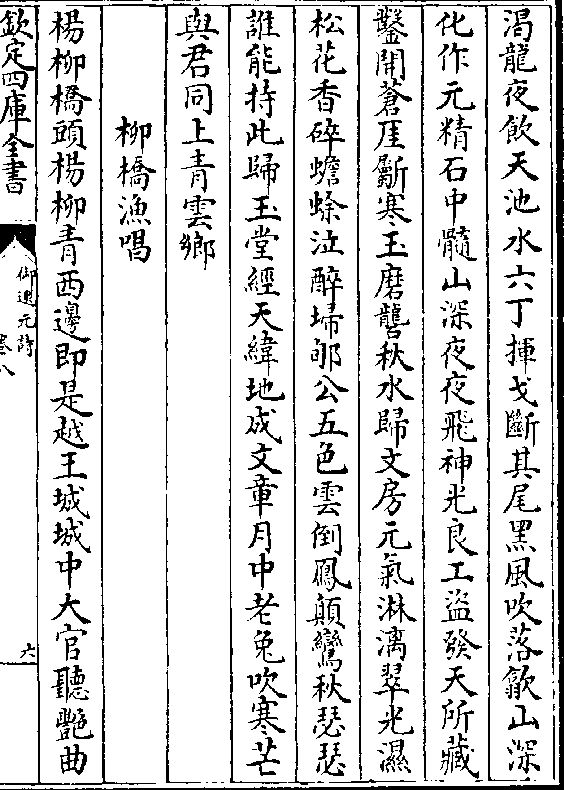 渴龍夜飲天池水六丁揮戈斷其尾黑風吹落歙山深
化作元精石中髓山深夜夜飛神光良工盜發天所藏
鑿開蒼厓斸寒玉磨礱秋水歸文房元氣淋漓翠光濕
松花香碎蟾蜍泣醉埽郇公五色雲倒鳳顛鸞秋瑟瑟
誰能持此歸玉堂經天緯地成文章月中老兔吹寒芒
與君同上青雲鄉
柳橋漁唱
楊柳橋頭楊柳青西邊即是越王城城中大官聽艷曲
欽定四庫全書
御選元詩
卷八
六